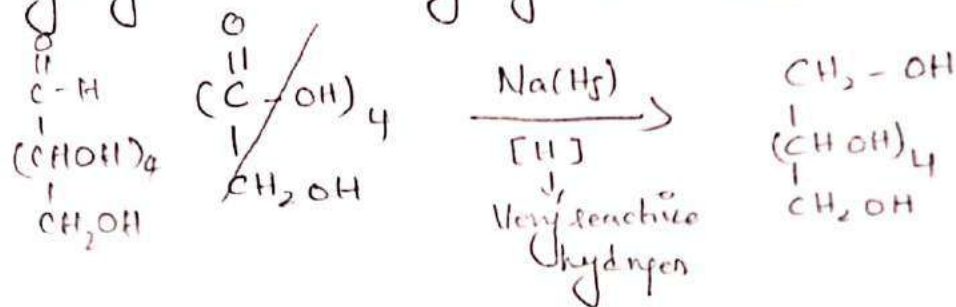 O
||
C - H
|
(CHOH)4
|
CH2OH
O
||
(C - OH)4
|
CH2OH
Na(Hg)
[H]
↓
Very reactive
hydrogen
CH2 - OH
|
(CHOH)4
|
CH2OH